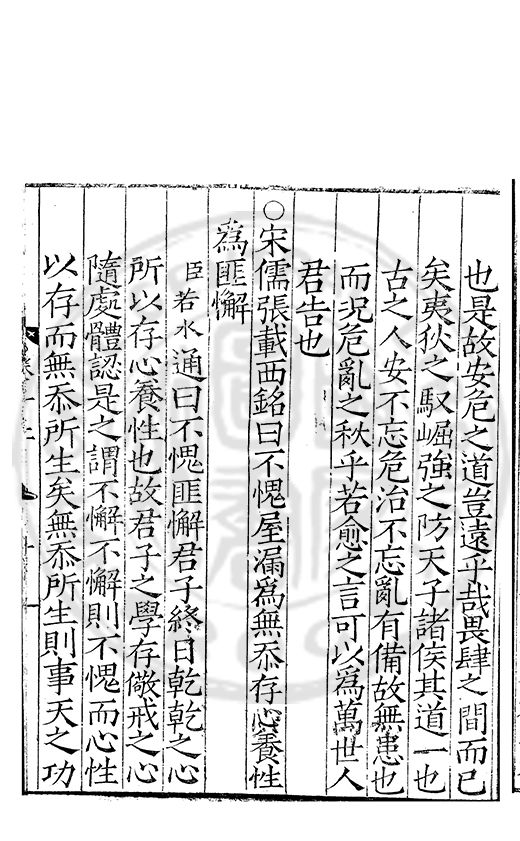 也是故安危之道豈遠乎哉畏肆之間而已
矣夷狄之馭崛強之防天子諸侯其道一也
古之人安不忘危治不忘亂有備故無患也
而況危亂之秋乎若愈之言可以爲萬世人
君告也
○宋儒張載西銘曰不愧屋漏爲無忝存心養性
爲匪懈
臣若水通曰不愧匪懈君子終日乾乾之心
所以存心養性也故君子之學存儆戒之心
隨處體認是之謂不懈不懈則不愧而心性
以存而無忝所生矣無忝所生則事天之功